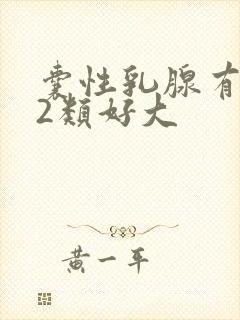 囊性乳腺有
2類好大
黃一平